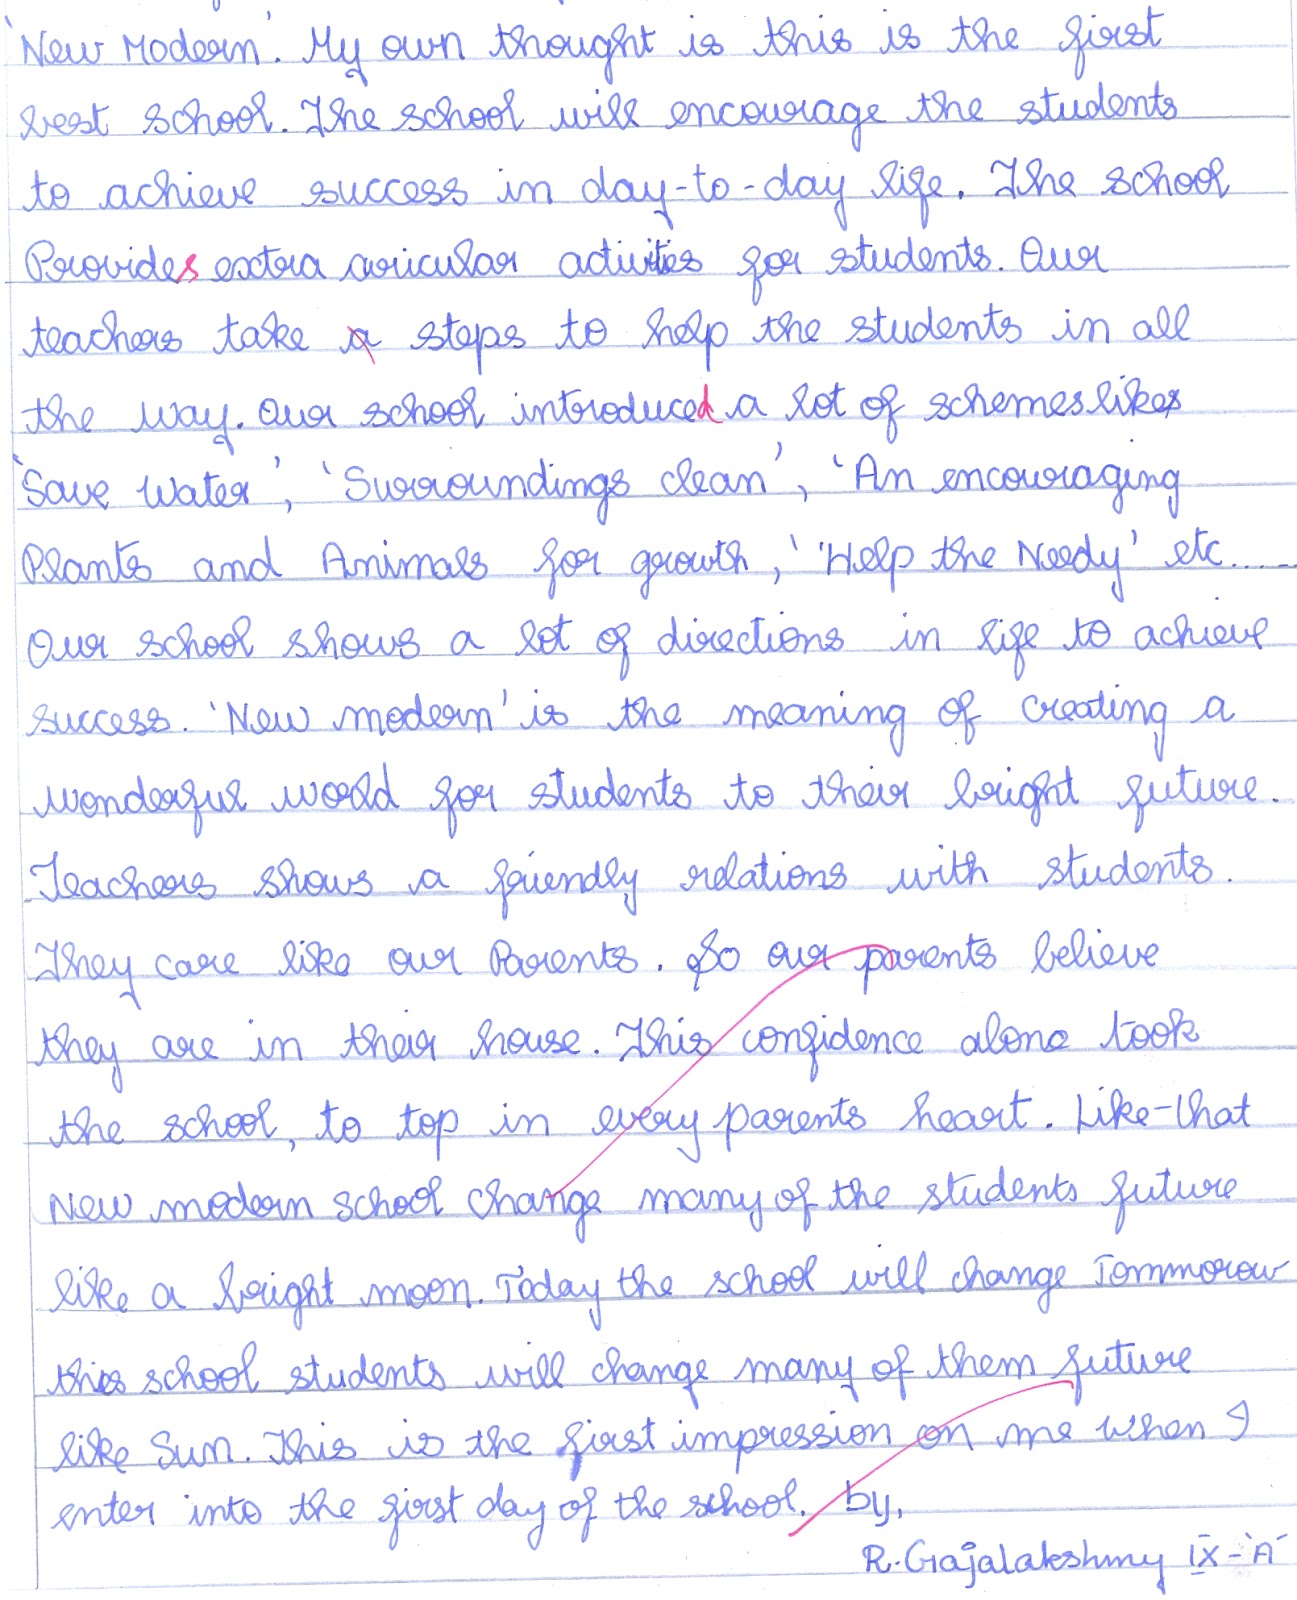 'New Modern'. My own thought is this is the first
best school. The school will encourage the students
to achieve success in day-to-day life. The school
Provides extra curicular activities for students. Our
teachers take a steps to help the students in all
the way. Our school introduced a lot of schemes likes
'Save Water', 'Surroundings clean', 'An encouraging
Plants and Animals for growth,' 'Help the Needy' etc.....
Our school shows a lot of directions in life to achieve
success. 'New modern' is the meaning of creating a
wonderful world for students to their bright future.
Teachers shows a friendly relations with students.
They care like our Parents. So our parents believe
they are in their house. This confidence alone took
the school, to top in every parents heart. Like-that
New modern school change many of the students future
like a bright moon. Today the school will change Tommorow
this school students will change many of them future
like Sun. This is the first impression on me when I
enter into the first day of the school. by,
R. Gajalakshmy IX-'A'